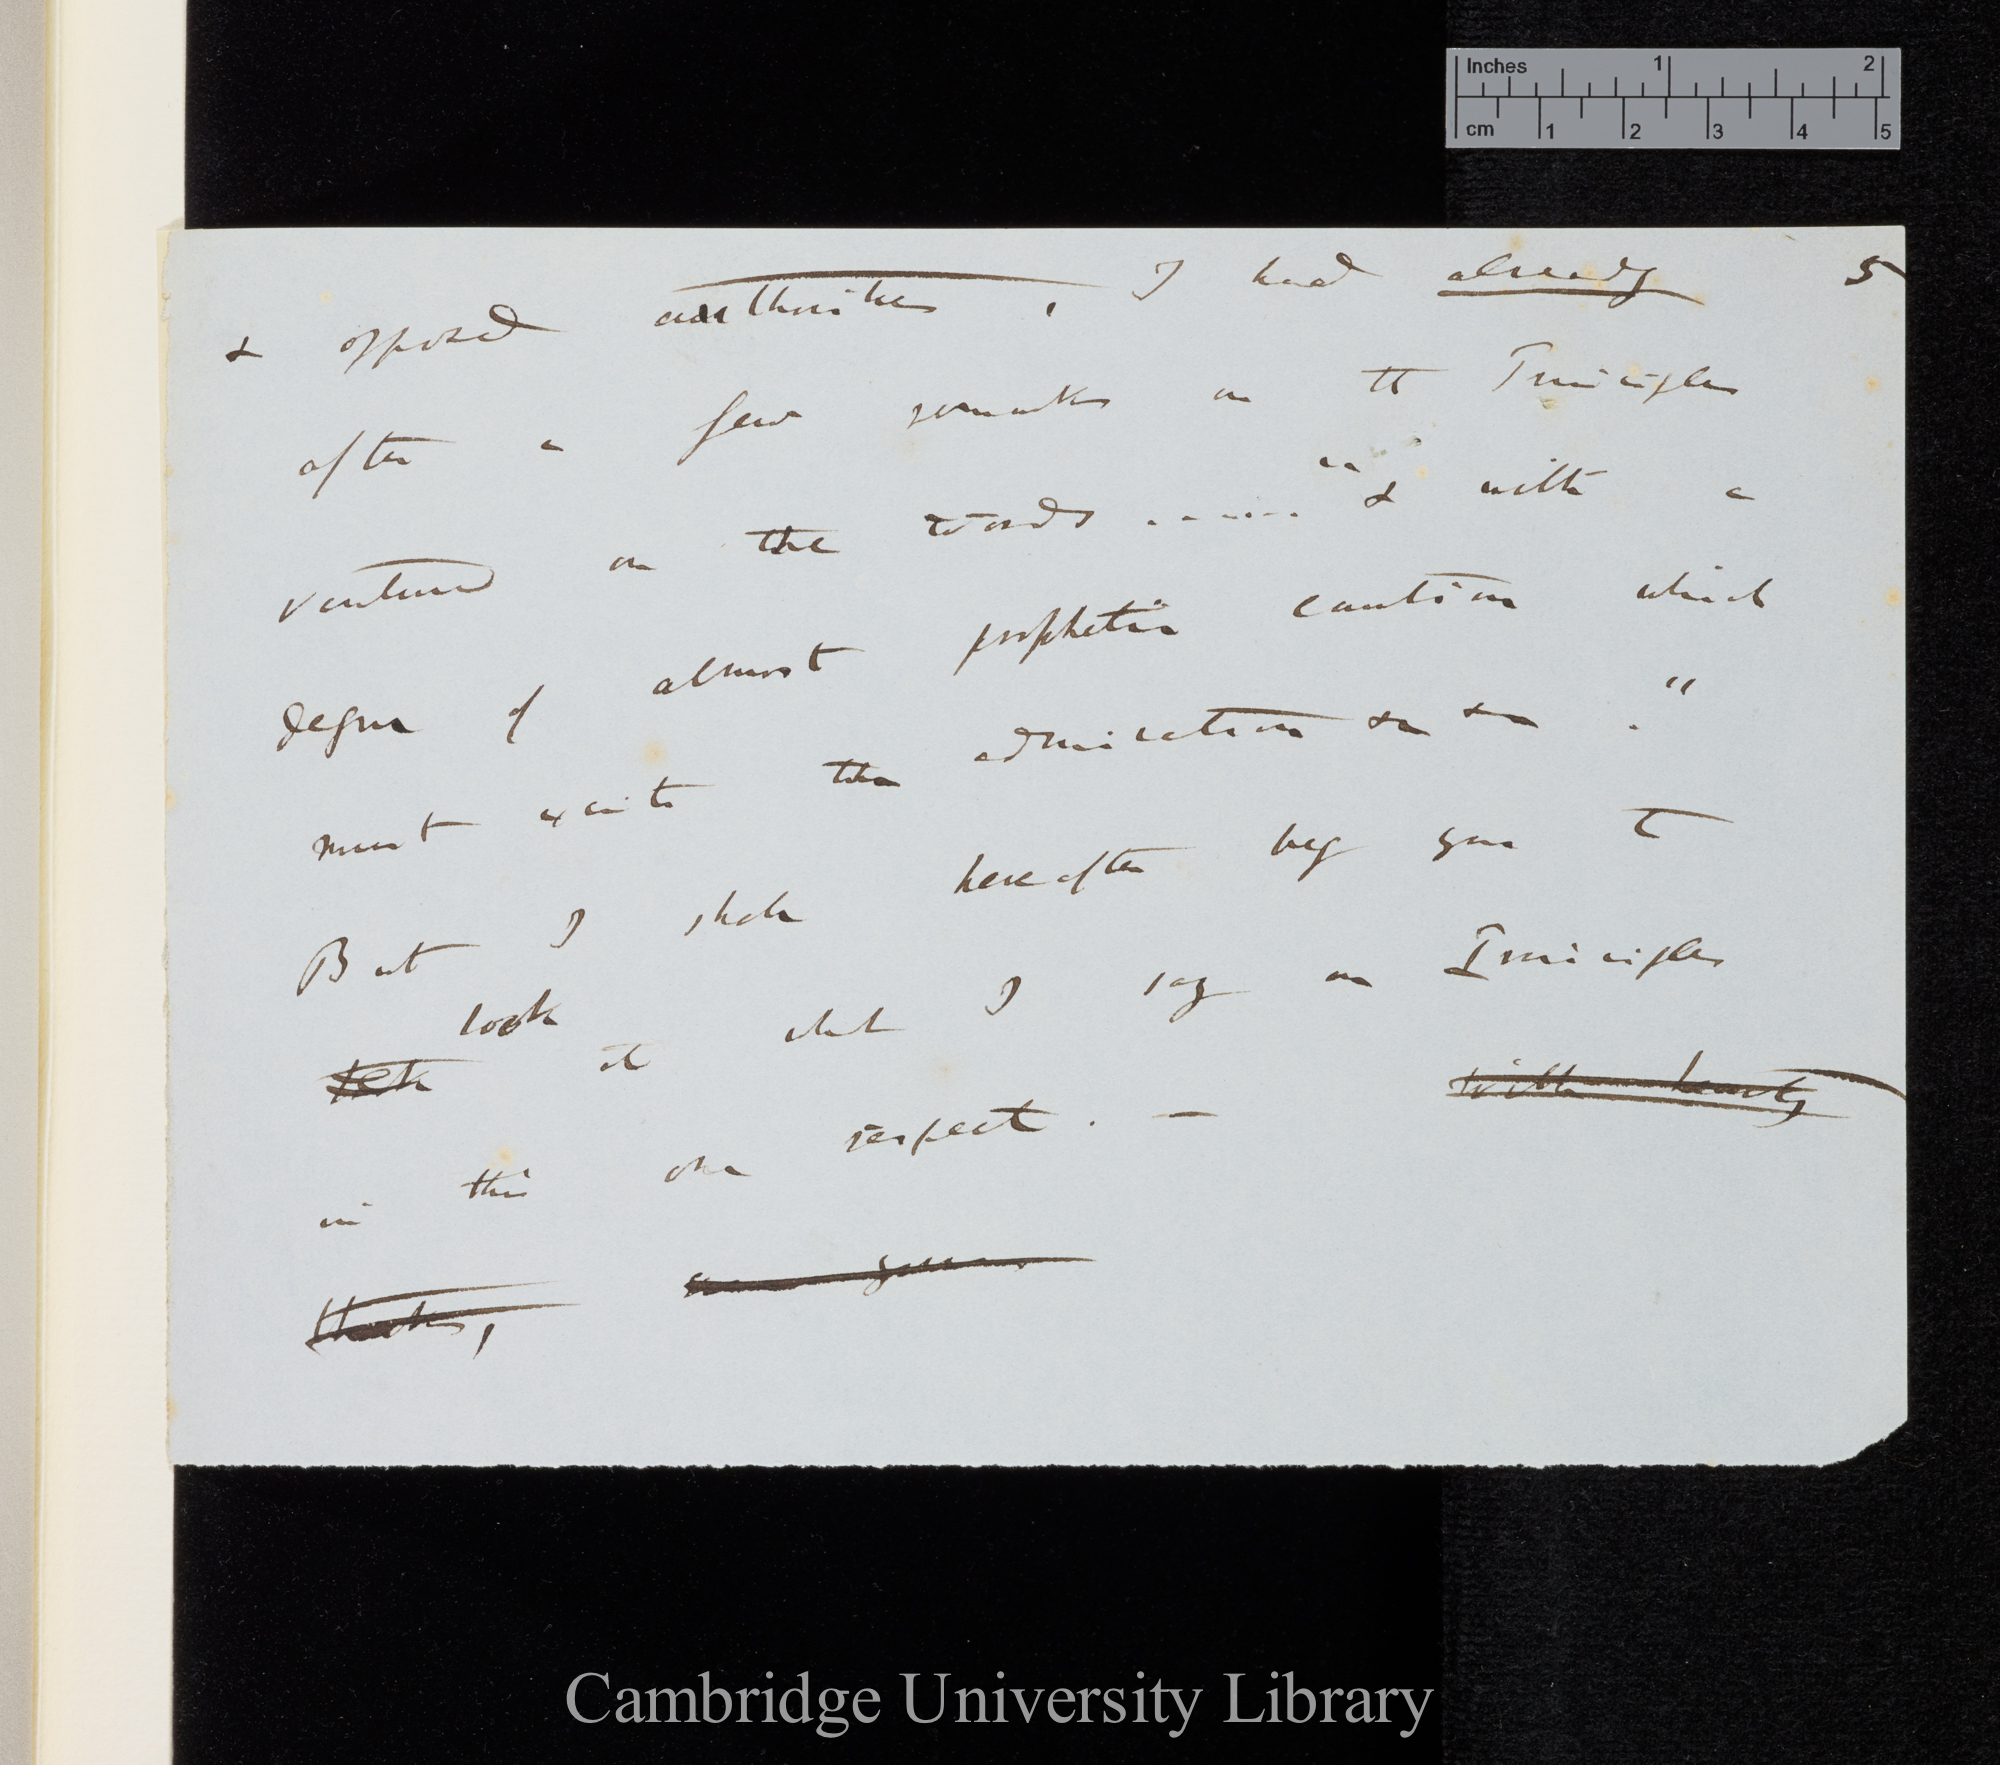 Inches 1 2
cm 1 2 3 4 5
5
& opposed authorities, I had already
after a few remarks on the Principles
ventured on the words ...... "& with a
degree of almost prophetic caution which
must excite the admiration &c &c ."
But I shall hereafter beg you to
look
at what I say on Principles
in this one respect. — with hearty
thanks,
Cambridge University Library